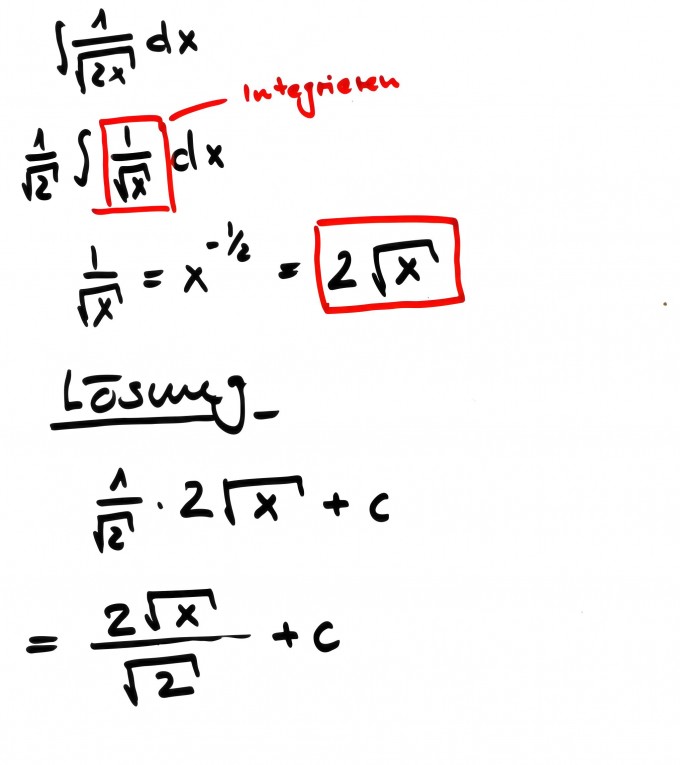 ∫ 1/√2x dx
Integrieren
1/√2 ∫ 1/√x dx
1/√x = x^-1/2 = 2√x
Lösung
1/√2 · 2√x + c
= 2√x/√2 + c